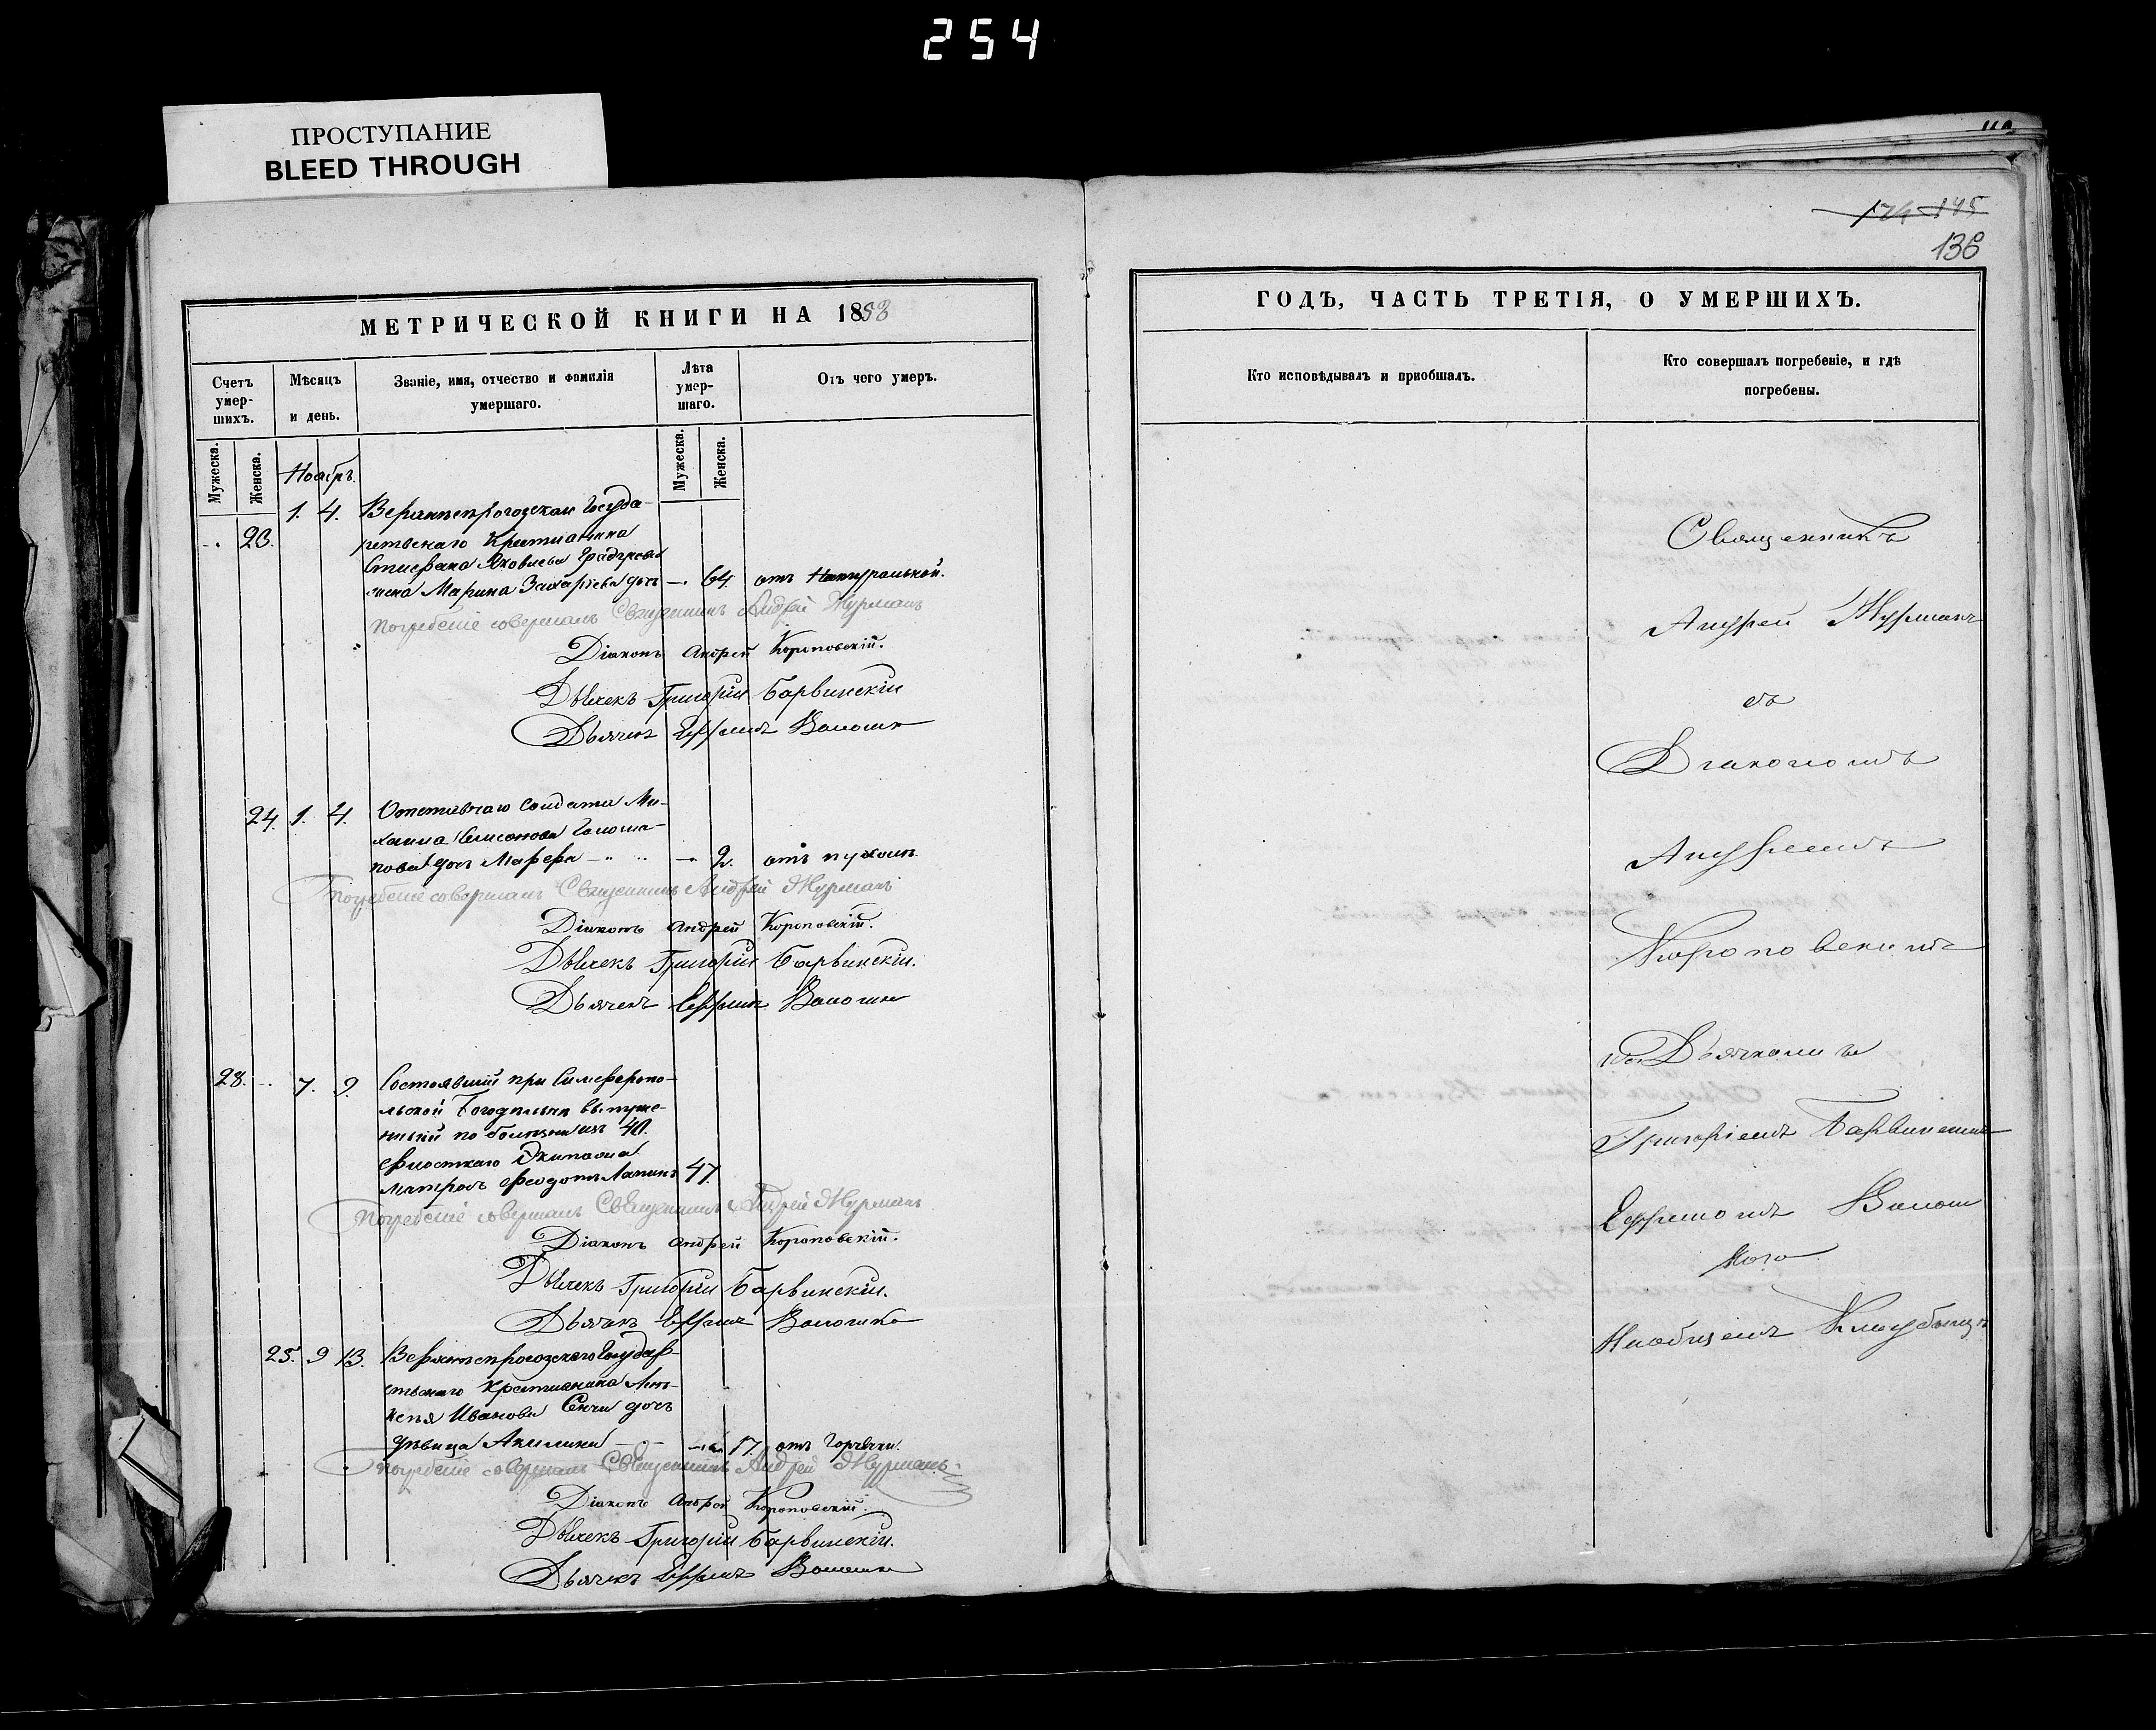 254
ПРОСТУПАНИЕ
BLEED THROUGH
174 145
136
МЕТРИЧЕСКОЙ КНИГИ НА 1858
Счетъ умер-шихъ.
Мѣсяцъ и день.
Званіе, имя, отчество и фамилія умершаго.
Лѣта умер-шаго.
Отъ чего умеръ.
Мужеска.
Женска.
Мужеска.
Женска.
Ноябрь.
23. 1. 4.
крестьянина
Стефана Яковлева
жена Марина Захарьева дочь 64. отъ Натуральной.
Погребеніе совершалъ Священникъ Андрей Журманъ
Діаконъ Андрей Короповскій.
Дьячекъ Григорій Барвинскій
Дьячекъ Ефремъ Волошко
24. 1. 4. Отставнаго Солдата Ми-
хаила
дочь Марфа 2. отъ
Погребеніе совершалъ Священникъ Андрей Журманъ
Діаконъ Андрей Короповскій.
Дьячекъ Григорій Барвинскій.
Дьячекъ Ефремъ Волошко
28. 7. 9. Состоявшій при Симферопо-
льской Богодельни выпуще-
нный по 40.
флотскаго Экипажа
матросъ Феодотъ Лапинъ 47.
Погребеніе совершалъ Священникъ Андрей Журманъ
Діаконъ Андрей Короповскій.
Дьячекъ Григорій Барвинскій.
Дьячекъ Ефремъ Волошко
25. 9 13. Государ-
ственнаго крестьянина
Иванова дочь
дѣвица Акилина 17. отъ Горячки.
Погребеніе совершалъ Священникъ Андрей Журманъ
Діаконъ Андрей Короповскій.
Дьячекъ Григорій Барвинскій.
Дьячекъ Ефремъ Волошко
ГОДЪ, ЧАСТЬ ТРЕТІЯ, О УМЕРШИХЪ.
Кто исповѣдывалъ и пріобщалъ.
Кто совершалъ погребеніе, и гдѣ
погребены.
Священникъ
Андрей Журманъ
съ
Діакономъ
Андреемъ
Короповскимъ
Дьячками
Григоріемъ Барвинскимъ
Ефремомъ Волош
кого
На общемъ Кладбищѣ